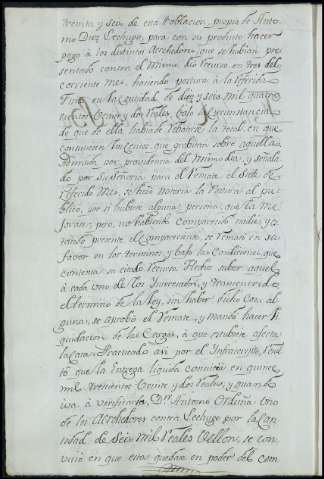 treinta y seis de esta Poblacion, propia de Anto-
nio Diez Lechuga, para con su producto hacer
pago á los distintos Acrehedores que se habian pre-
sentado contra el mismo dio trueva en tres del
corriente mes, haciendo postura á la referida
Finca en la cantidad de diez y seis mil quatro-
cientos ochenta y dos reales, bajo la circunstancia
de que de ella habia de rebajarse la total en que
consistiesen los Censos que grabiten sobre aquella
Admitida por providencia del mismo dia, y señala-
do por su Señoria para el Remate el Siete de
referido Mes, se hizo notoria la Postura al pu-
blico, por si hubiese alguna persona que la me-
jorase; pero no habiendo comparecido nadie, y es-
tando presente el compareciente, se remató en su
favor en los terminos y bajo las condiciones que
contenia su citada Postura. Hecho saber aquel
á cada uno de los Interesados, y transcurrido
el termino de la Ley, sin haber dicho cosa al-
guna, se aprobó el Remate, y mandó hacer li-
quidacion de las Cargas, á que estubiese afecta
la Casa: Practicado asi por el Infraescripto, resul-
tó que la Entrega liquida consistia en quince
mil trescientos veinte y dos reales, y quando
iva á verificarla, Dn. Antonio Orduña Uno
de los Acrehedores contra Lechuga por la Can-
tidad de Seis mil reales vellon, se con-
vinio en que estos quedaran en poder del com-